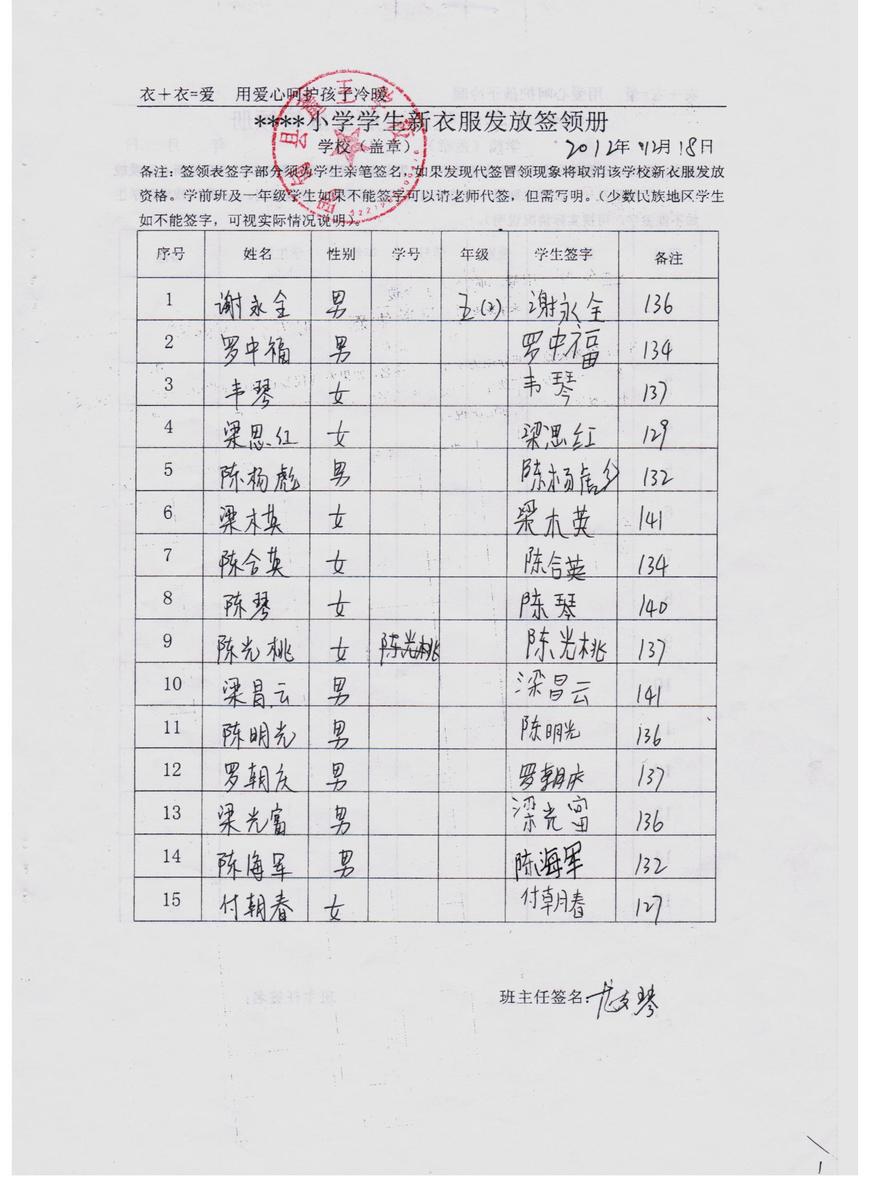 衣+衣=爱 用爱心呵护孩子冷暖
****小学学生新衣服发放签领册
学校（盖章） 2012年12月18日
备注：签领表签字部分须为学生亲笔签名，如果发现代签冒领现象将取消该学校新衣服发放
资格。学前班及一年级学生如果不能签字可以请老师代签，但需写明。（少数民族地区学生
如不能签字，可视实际情况说明）。
序号 姓名 性别 学号 年级 学生签字 备注
1 谢永全 男 五(2) 谢永全 136
2 罗中福 男 罗中福 134
3 韦琴 女 韦琴 137
4 梁思红 女 梁思红 129
5 陈杨彪 男 陈杨彪 132
6 梁木英 女 梁木英 141
7 陈合英 女 陈合英 134
8 陈琴 女 陈琴 140
9 陈光桃 女 陈光桃 陈光桃 137
10 梁昌云 男 梁昌云 141
11 陈明光 男 陈明光 136
12 罗朝庆 男 罗朝庆 137
13 梁光富 男 梁光富 136
14 陈海军 男 陈海军 132
15 付朝春 女 付朝春 127
班主任签名：琴
1